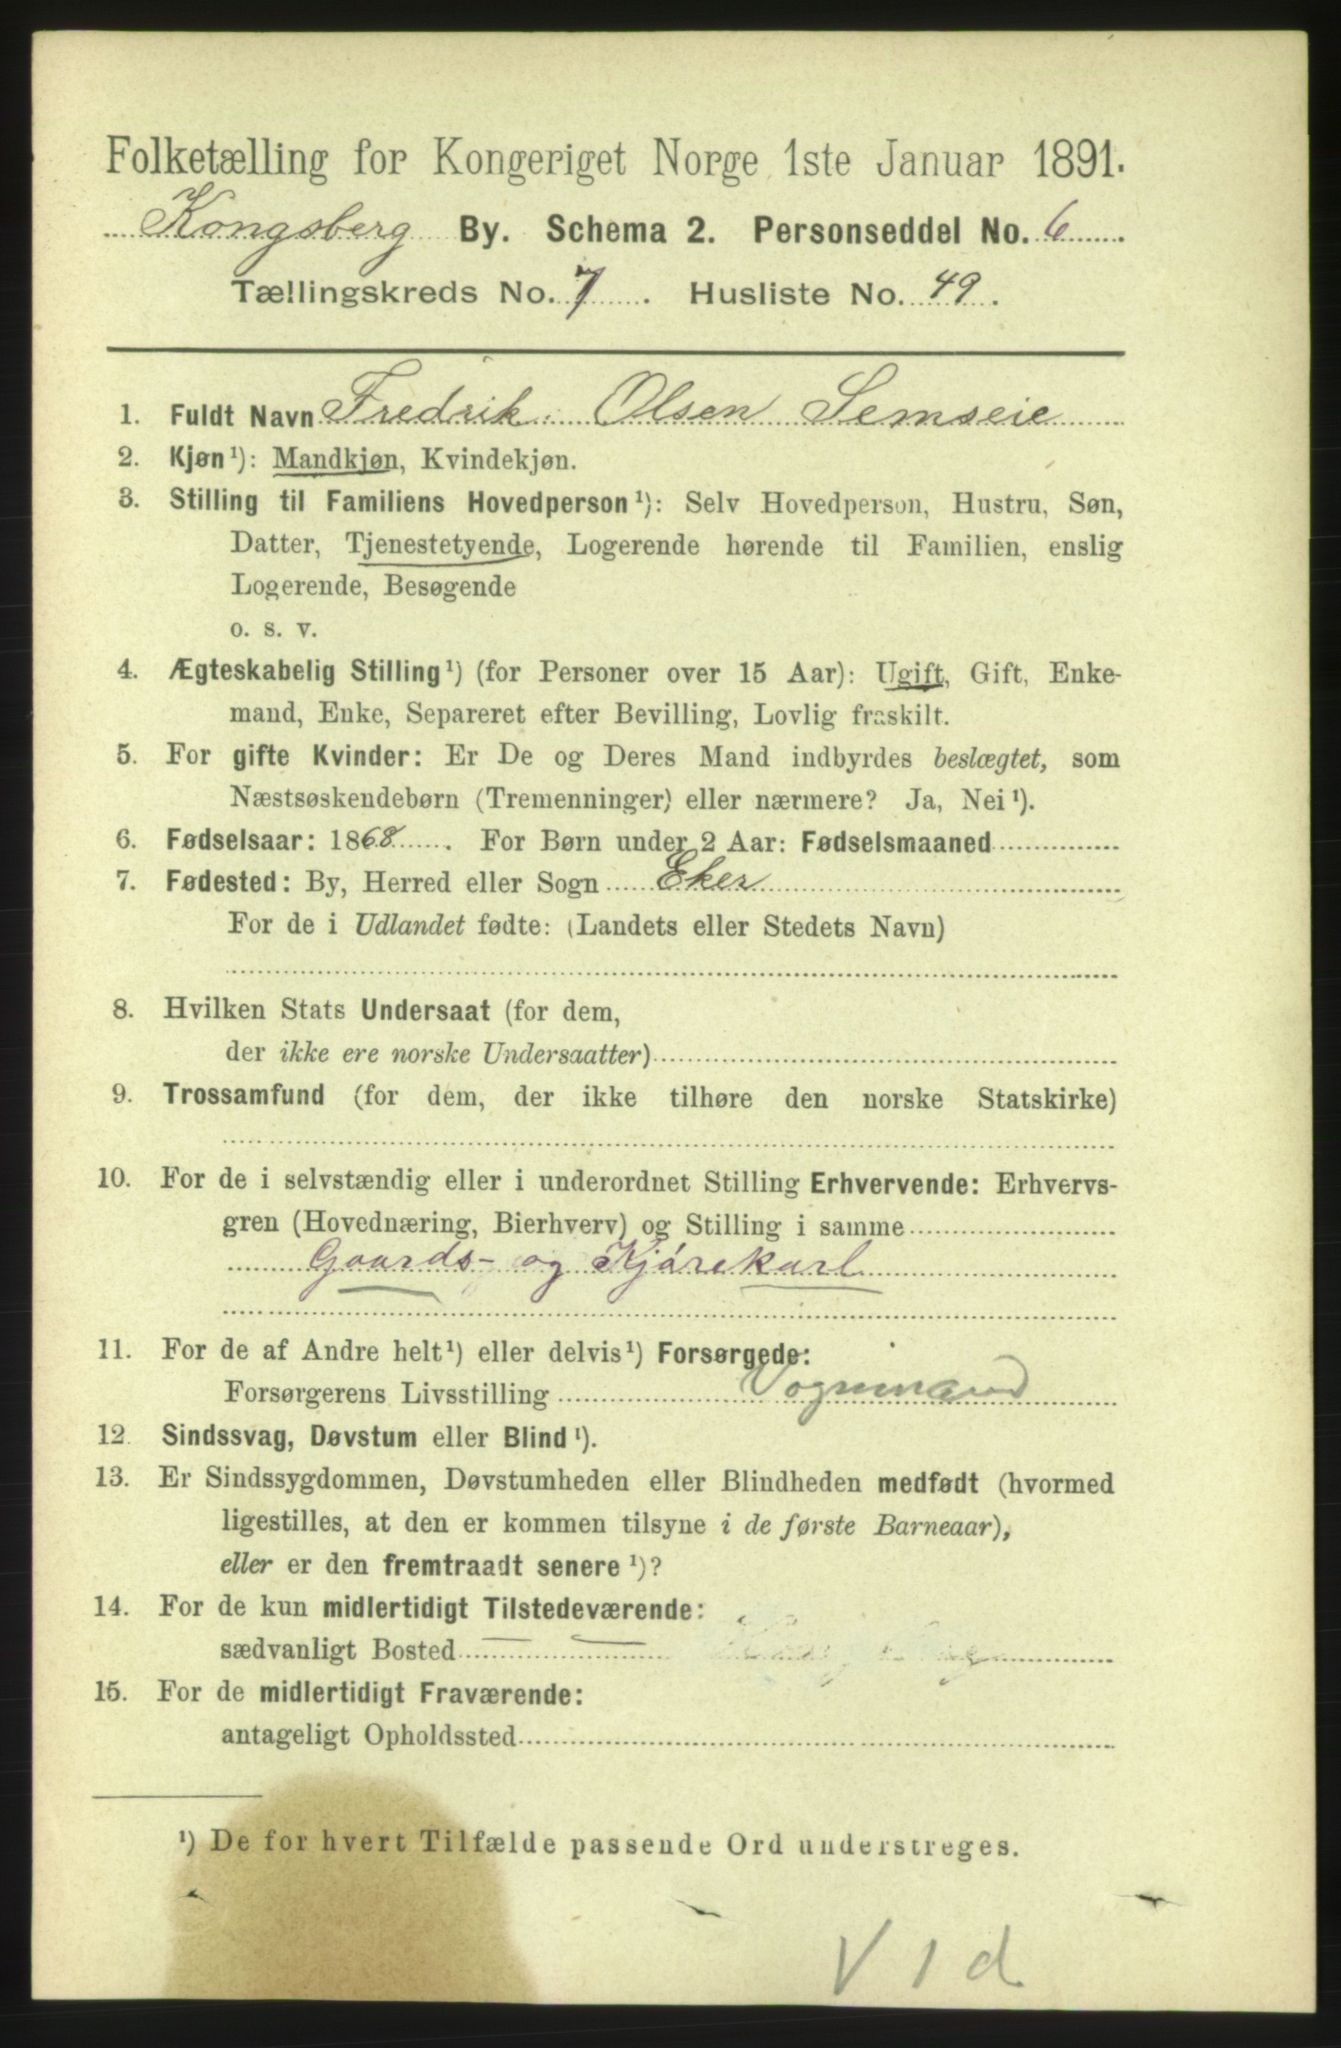 Folketælling for Kongeriget Norge 1ste Januar 1891.
Kongsberg By. Schema 2. Personseddel No. 6
Tællingskreds No. 7. Husliste No. 49.
1. Fuldt Navn Fredrik Olsen Semseie
2. Kjøn¹): Mandkjøn, Kvindekjøn.
3. Stilling til Familiens Hovedperson¹): Selv Hovedperson, Hustru, Søn,
Datter, Tjenestetyende, Logerende hørende til Familien, enslig
Logerende, Besøgende
o. s. v.
4. Ægteskabelig Stilling¹) (for Personer over 15 Aar): Ugift, Gift, Enke-
mand, Enke, Separeret efter Bevilling, Lovlig fraskilt.
5. For gifte Kvinder: Er De og Deres Mand indbyrdes beslægtet, som
Næstsøskendebørn (Tremenninger) eller nærmere? Ja, Nei¹).
6. Fødselsaar: 1868. For Børn under 2 Aar: Fødselsmaaned
7. Fødested: By, Herred eller Sogn Eker
For de i Udlandet fødte: (Landets eller Stedets Navn)
8. Hvilken Stats Undersaat (for dem,
der ikke ere norske Undersaatter)
9. Trossamfund (for dem, der ikke tilhøre den norske Statskirke)
10. For de i selvstændig eller i underordnet Stilling Erhvervende: Erhvervs-
gren (Hovednæring, Bierhverv) og Stilling i samme
Gaards- og Kjørekarl
11. For de af Andre helt¹) eller delvis¹) Forsørgede:
Forsørgerens Livsstilling Vognmand
12. Sindssvag, Døvstum eller Blind¹).
13. Er Sindssygdommen, Døvstumheden eller Blindheden medfødt (hvormed
ligestilles, at den er kommen tilsyne i de første Barneaar),
eller er den fremtraadt senere¹)?
14. For de kun midlertidigt Tilstedeværende:
sædvanligt Bosted
15. For de midlertidigt Fraværende:
antageligt Opholdssted
¹) De for hvert Tilfælde passende Ord understreges.
V 1 d